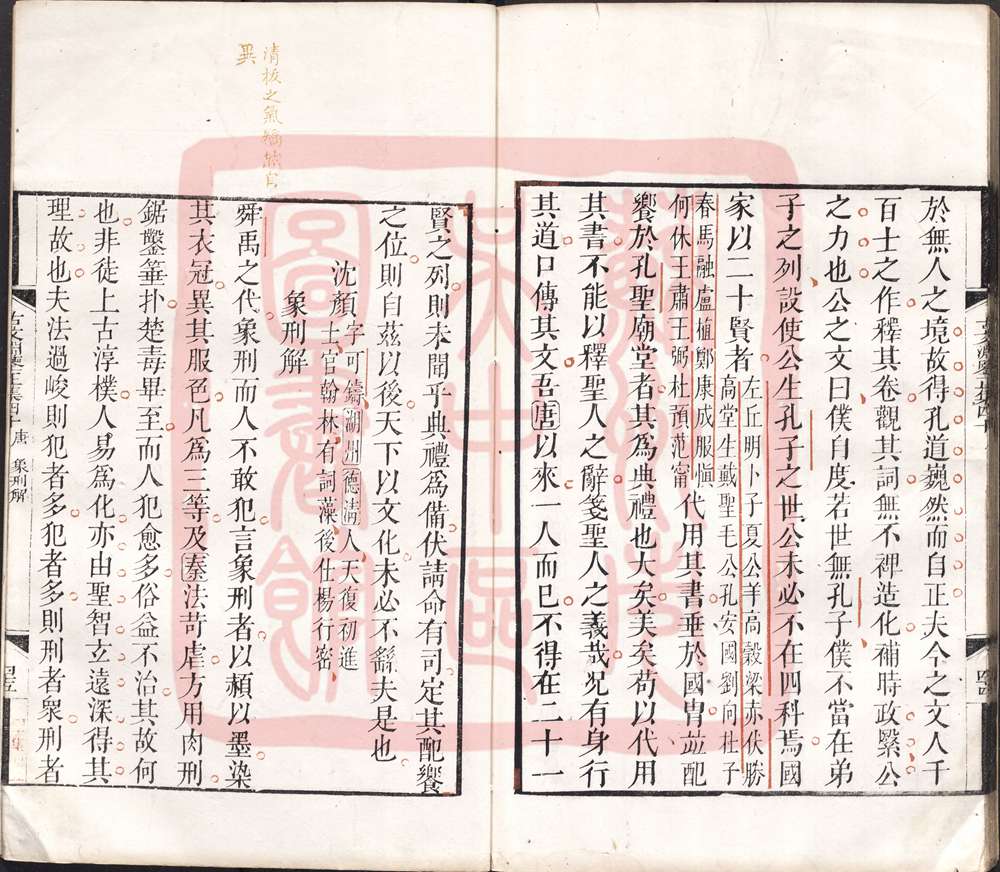 於無人之境故得孔道巍然而自正夫今之文人千
百士之作釋其卷觀其詞無不禆造化補時政緊公
之力也公之文曰僕自度若世無孔子僕不當在弟
子之列設使公生孔子之世公未必不在四科焉國
家以二十賢者左丘明卜子夏公羊高穀梁赤伏勝
高堂生戴聖毛公孔安國劉向杜子
春馬融盧植鄭康成服愼
何休王肅王弼杜預范甯代用其書垂於國胄並配
饗於孔聖廟堂者其爲典禮也大矣美矣苟以代用
其書不能以釋聖人之辭箋聖人之義哉况有身行
其道口傳其文吾唐以來一人而已不得在二十一
四四
賢之列則未聞乎典禮爲備伏請命有司定其配饗
之位則自茲以後天下以文化未必不繇夫是也
沈顏字可鑄湖州德淸人天復初進
士官翰林有詞藻後仕楊行密
象刑解
舜禹之代象刑而人不敢犯言象刑者以赬以墨染
其衣冠異其服色凡爲三等及秦法苛虐方用肉刑
鋸鑿箠扑楚毒畢至而人犯愈多俗益不治其故何
也非徒上古淳樸人易爲化亦由聖智玄遠深得其
理故也夫法過峻則犯者多犯者多則刑者衆刑者
唐 象刑解
四五
清拔之氣
異